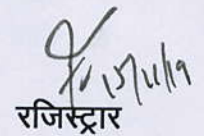 15/11/19
रजिस्ट्रार